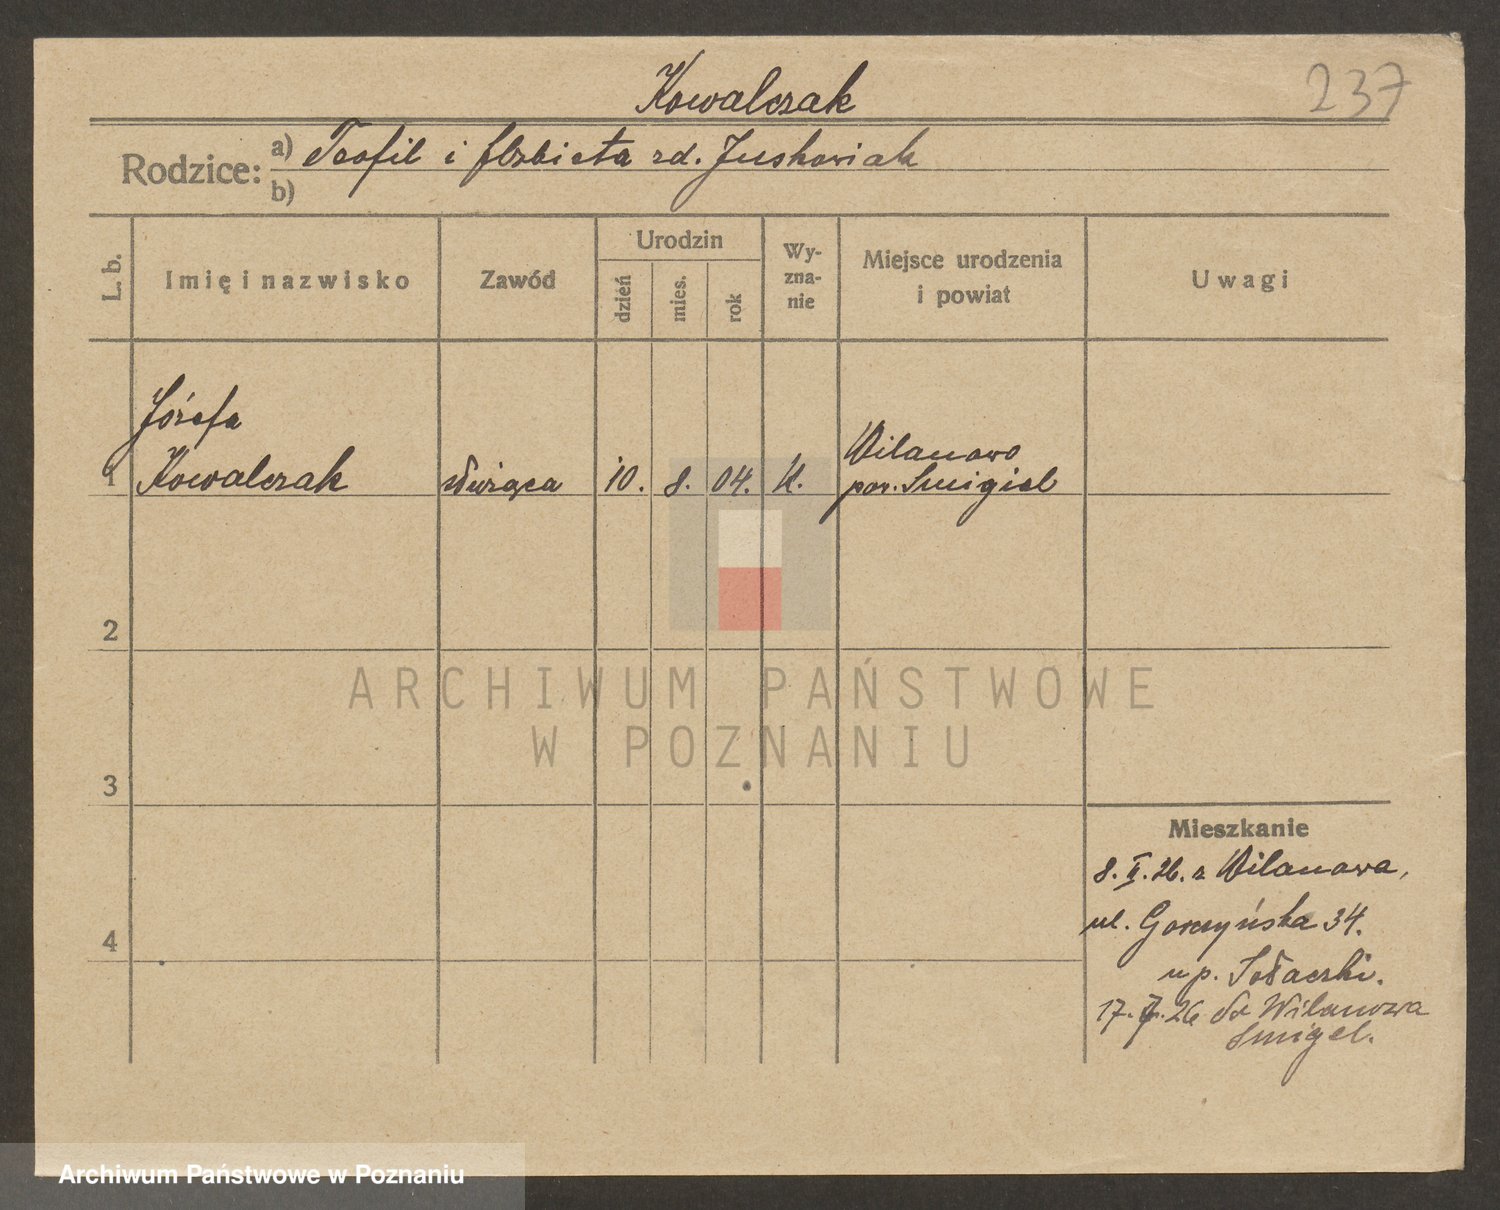 Kowalczak
237
Rodzice: a) Teofil i Elzbieta zd. Juskowiak
b)
L. b.
Imię i nazwisko
Zawód
Urodzin
dzień
mies.
rok
Wy-
zna-
nie
Miejsce urodzenia
i powiat
Uwagi
Józefa
1 Kowalczak służąca 10. 8. 04. K. Wilanowo
pow. Smigiel
2
3
4
ARCHIWUM PAŃSTWOWE
W POZNANIU
Mieszkanie
8. II. 26. z Wilanowa,
ul. Gorczyńska 34.
u p. Sołaczki.
17. 7. 26 do Wilanowa
Smigel.
Archiwum Państwowe w Poznaniu